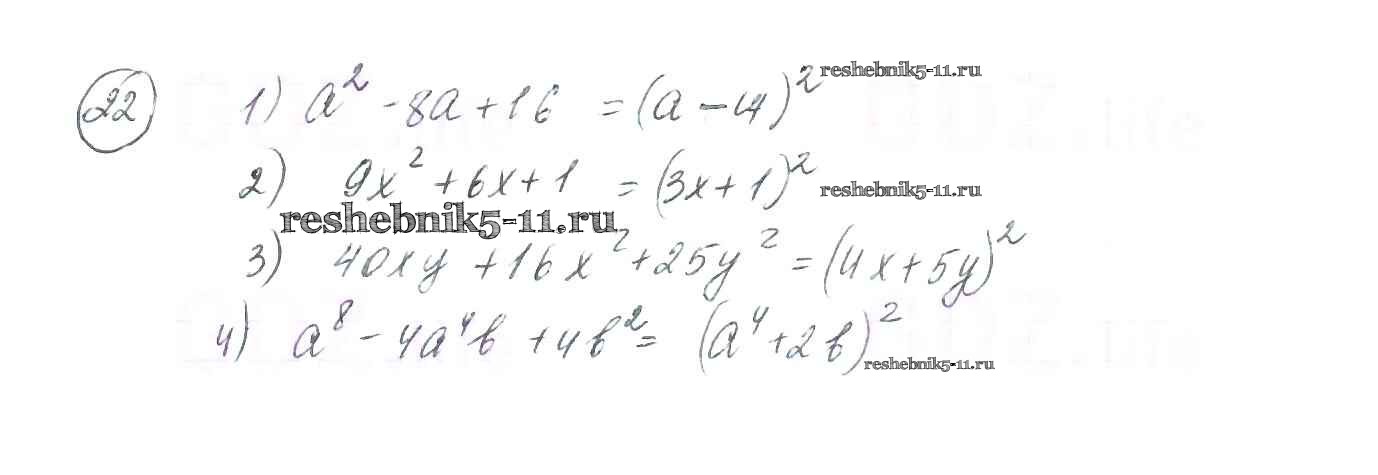 22
1) a² - 8a + 16 = (a - 4)² reshebnik5-11.ru
2) 9x² + 6x + 1 = (3x + 1)² reshebnik5-11.ru
reshebnik5-11.ru
3) 40xy + 16x² + 25y² = (4x + 5y)²
4) a⁸ - 4a⁴b + 4b² = (a⁴ + 2b)²
reshebnik5-11.ru